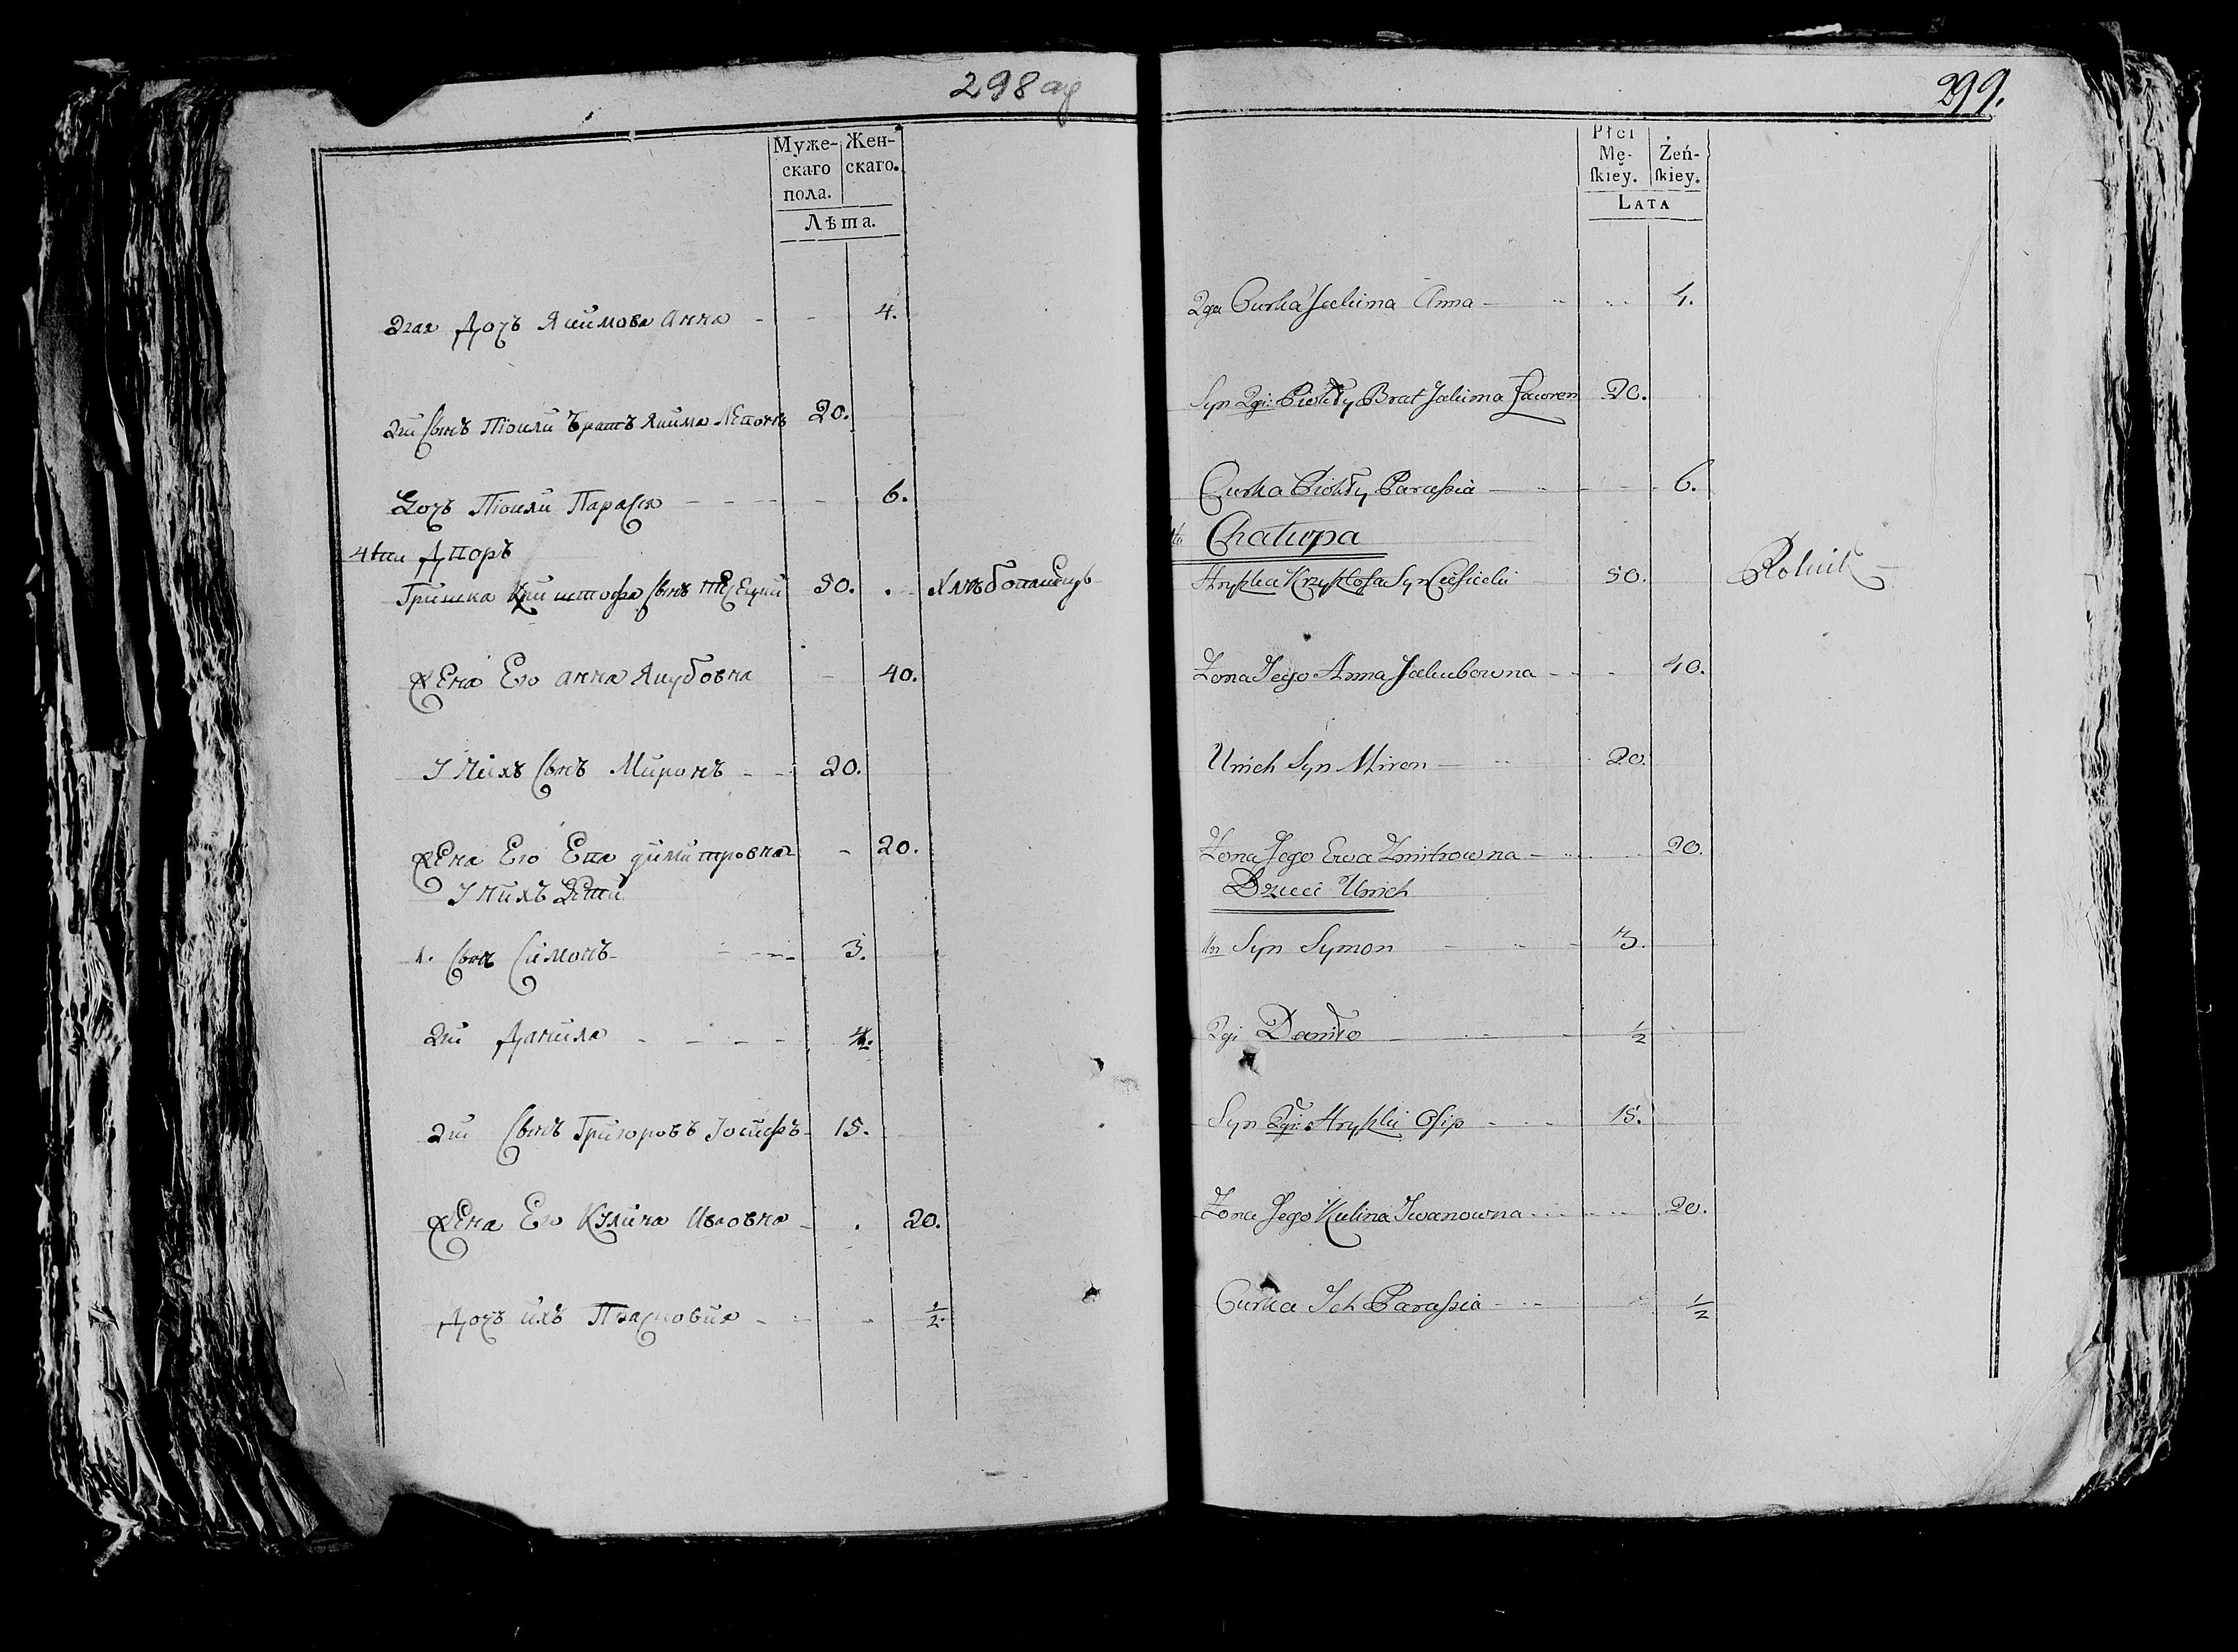 298 об
Муже-
скаго
пола.
Жен-
скаго.
Лѣта.
2гая Дочь Якимова Анна - - 4.
2й Сынъ Піокли Братъ Якима 20.
Дочь Піокли Парася - - - 6.
4тый Дворъ
Гришка Криштофа Сынъ 50. . Хлѣбопашецъ
Жена Его Анна Якубовна - 40.
У Нихъ Сынъ Миронъ - - 20.
Жена Его Ева Димитровна - 20.
У Нихъ Дети
1. Сынъ Симонъ - - - 3.
2й Данила - - - -
2й Сынъ Григоровъ Іосифъ - 15.
Жена Его Кулина Ивановна - . 20.
Дочь ихъ - - - 1/2.
299.
Płci
Mę-
ſkiey.
Żeń-
ſkiey.
LATA
2ga Curka Jakima Anna - 4.
Syn 2gi: Piokły Brat Jakima 20.
Curka Piokły Paraſsia - 6.
4ta Chałupa
Hryſzka Krzyſztofa Syn 50. Rolnik
Zona Jego Anna Jakubowna - - - 40.
Unich Syn Miron - 20.
Zona Jego Ewa Zmitrowna - 20.
Dzieci Unich
1n Syn Symon - 3.
2gi Daniło - 1/2
Syn 2gi: Hryſzki Oſip - 15.
Zona Jego Kulina Iwanowna - 20.
Curka Ich Paraſsia - 1/2